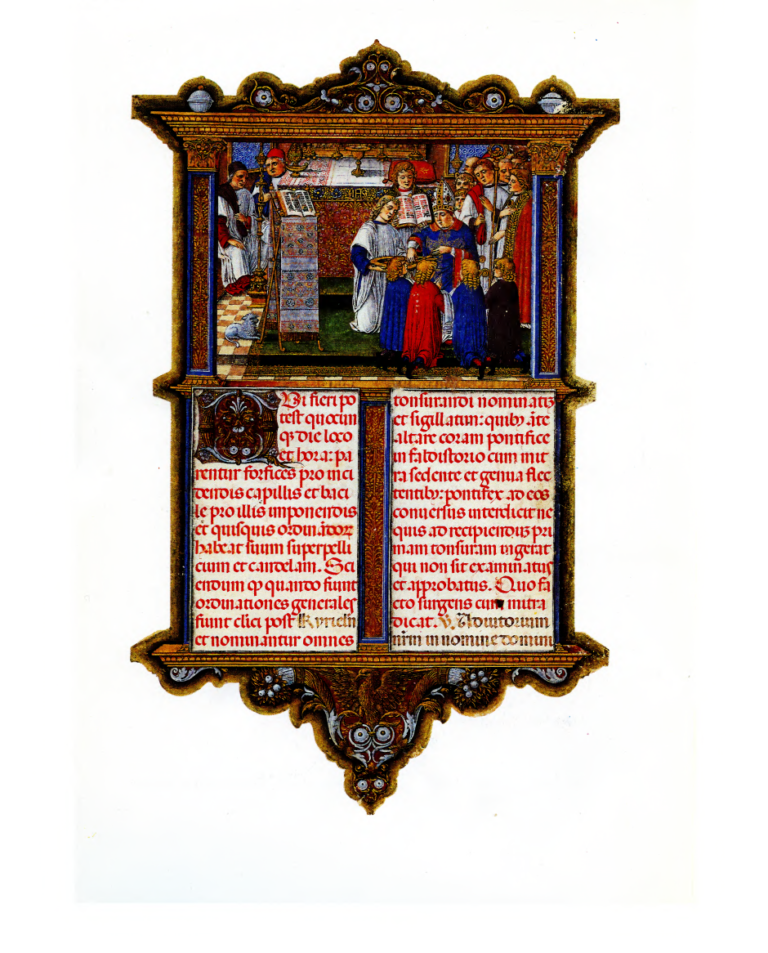 Qui fieri po
test quocun
qȝ die loco
et hora: pa
rentur forfices pro inci
dendis capillis et baci
le pro illis imponendis
et quisquis ordinādor
habeat suum superpelli
cium et candelam. Sci
endum ꝙ quando fiunt
ordinationes generales
fiunt clici post Kyriein
et nominantur omnes
tonsurandi nominatiȝ
et sigillatim: quibȝ āte
altare coram pontifice
in faldistorio cum mit
ra sedente et genua flec
tentibȝ: pontifex ad eos
conuersus interdicit ne
quis ad recipienduȝ pri
mam tonsuram ingerat
qui non sit examinatus
et approbatus. Quo fa
cto surgens cum mitra
dicat. ℣. Adiutorium
nr̄m in nomine domini